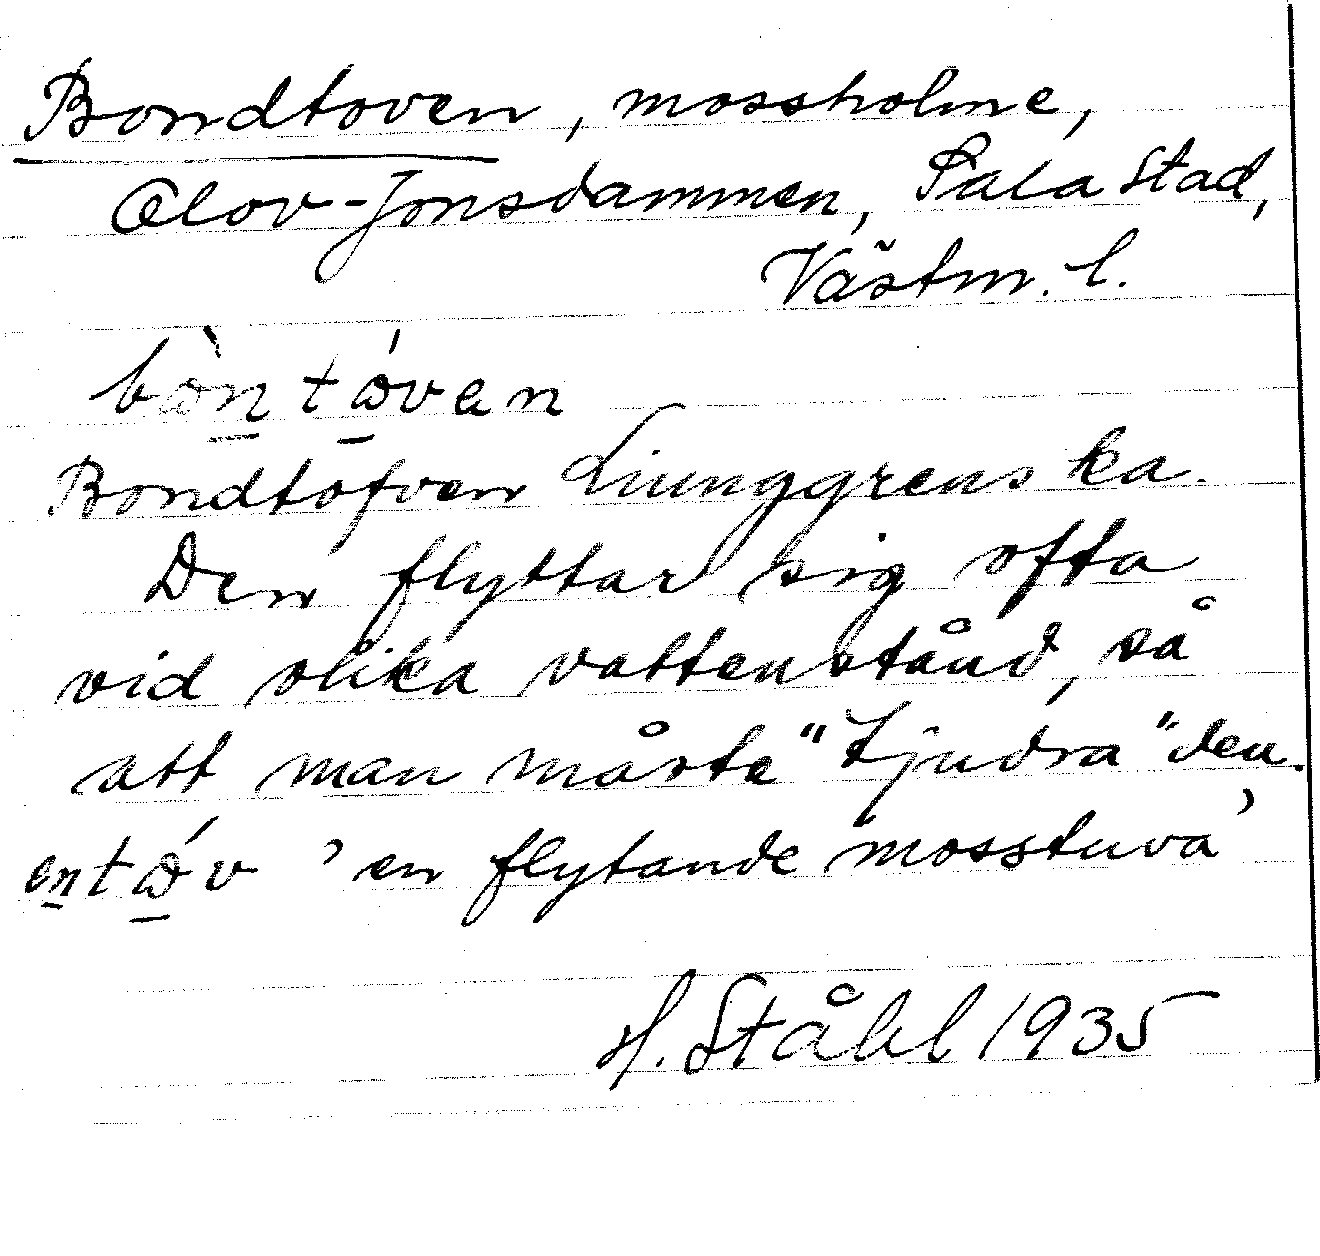 Bondtoven, mossholme,
Olov-Jonsdammen, Sala stad,
Västm. l.
bòn tóven
Bondtofven Liunggrens ka.
Den flyttar sig ofta
vid olika vattenstånd, så
att man måste "tjudra" den.
en tóv 'en flytande mosstuva'
H. Ståhl 1935